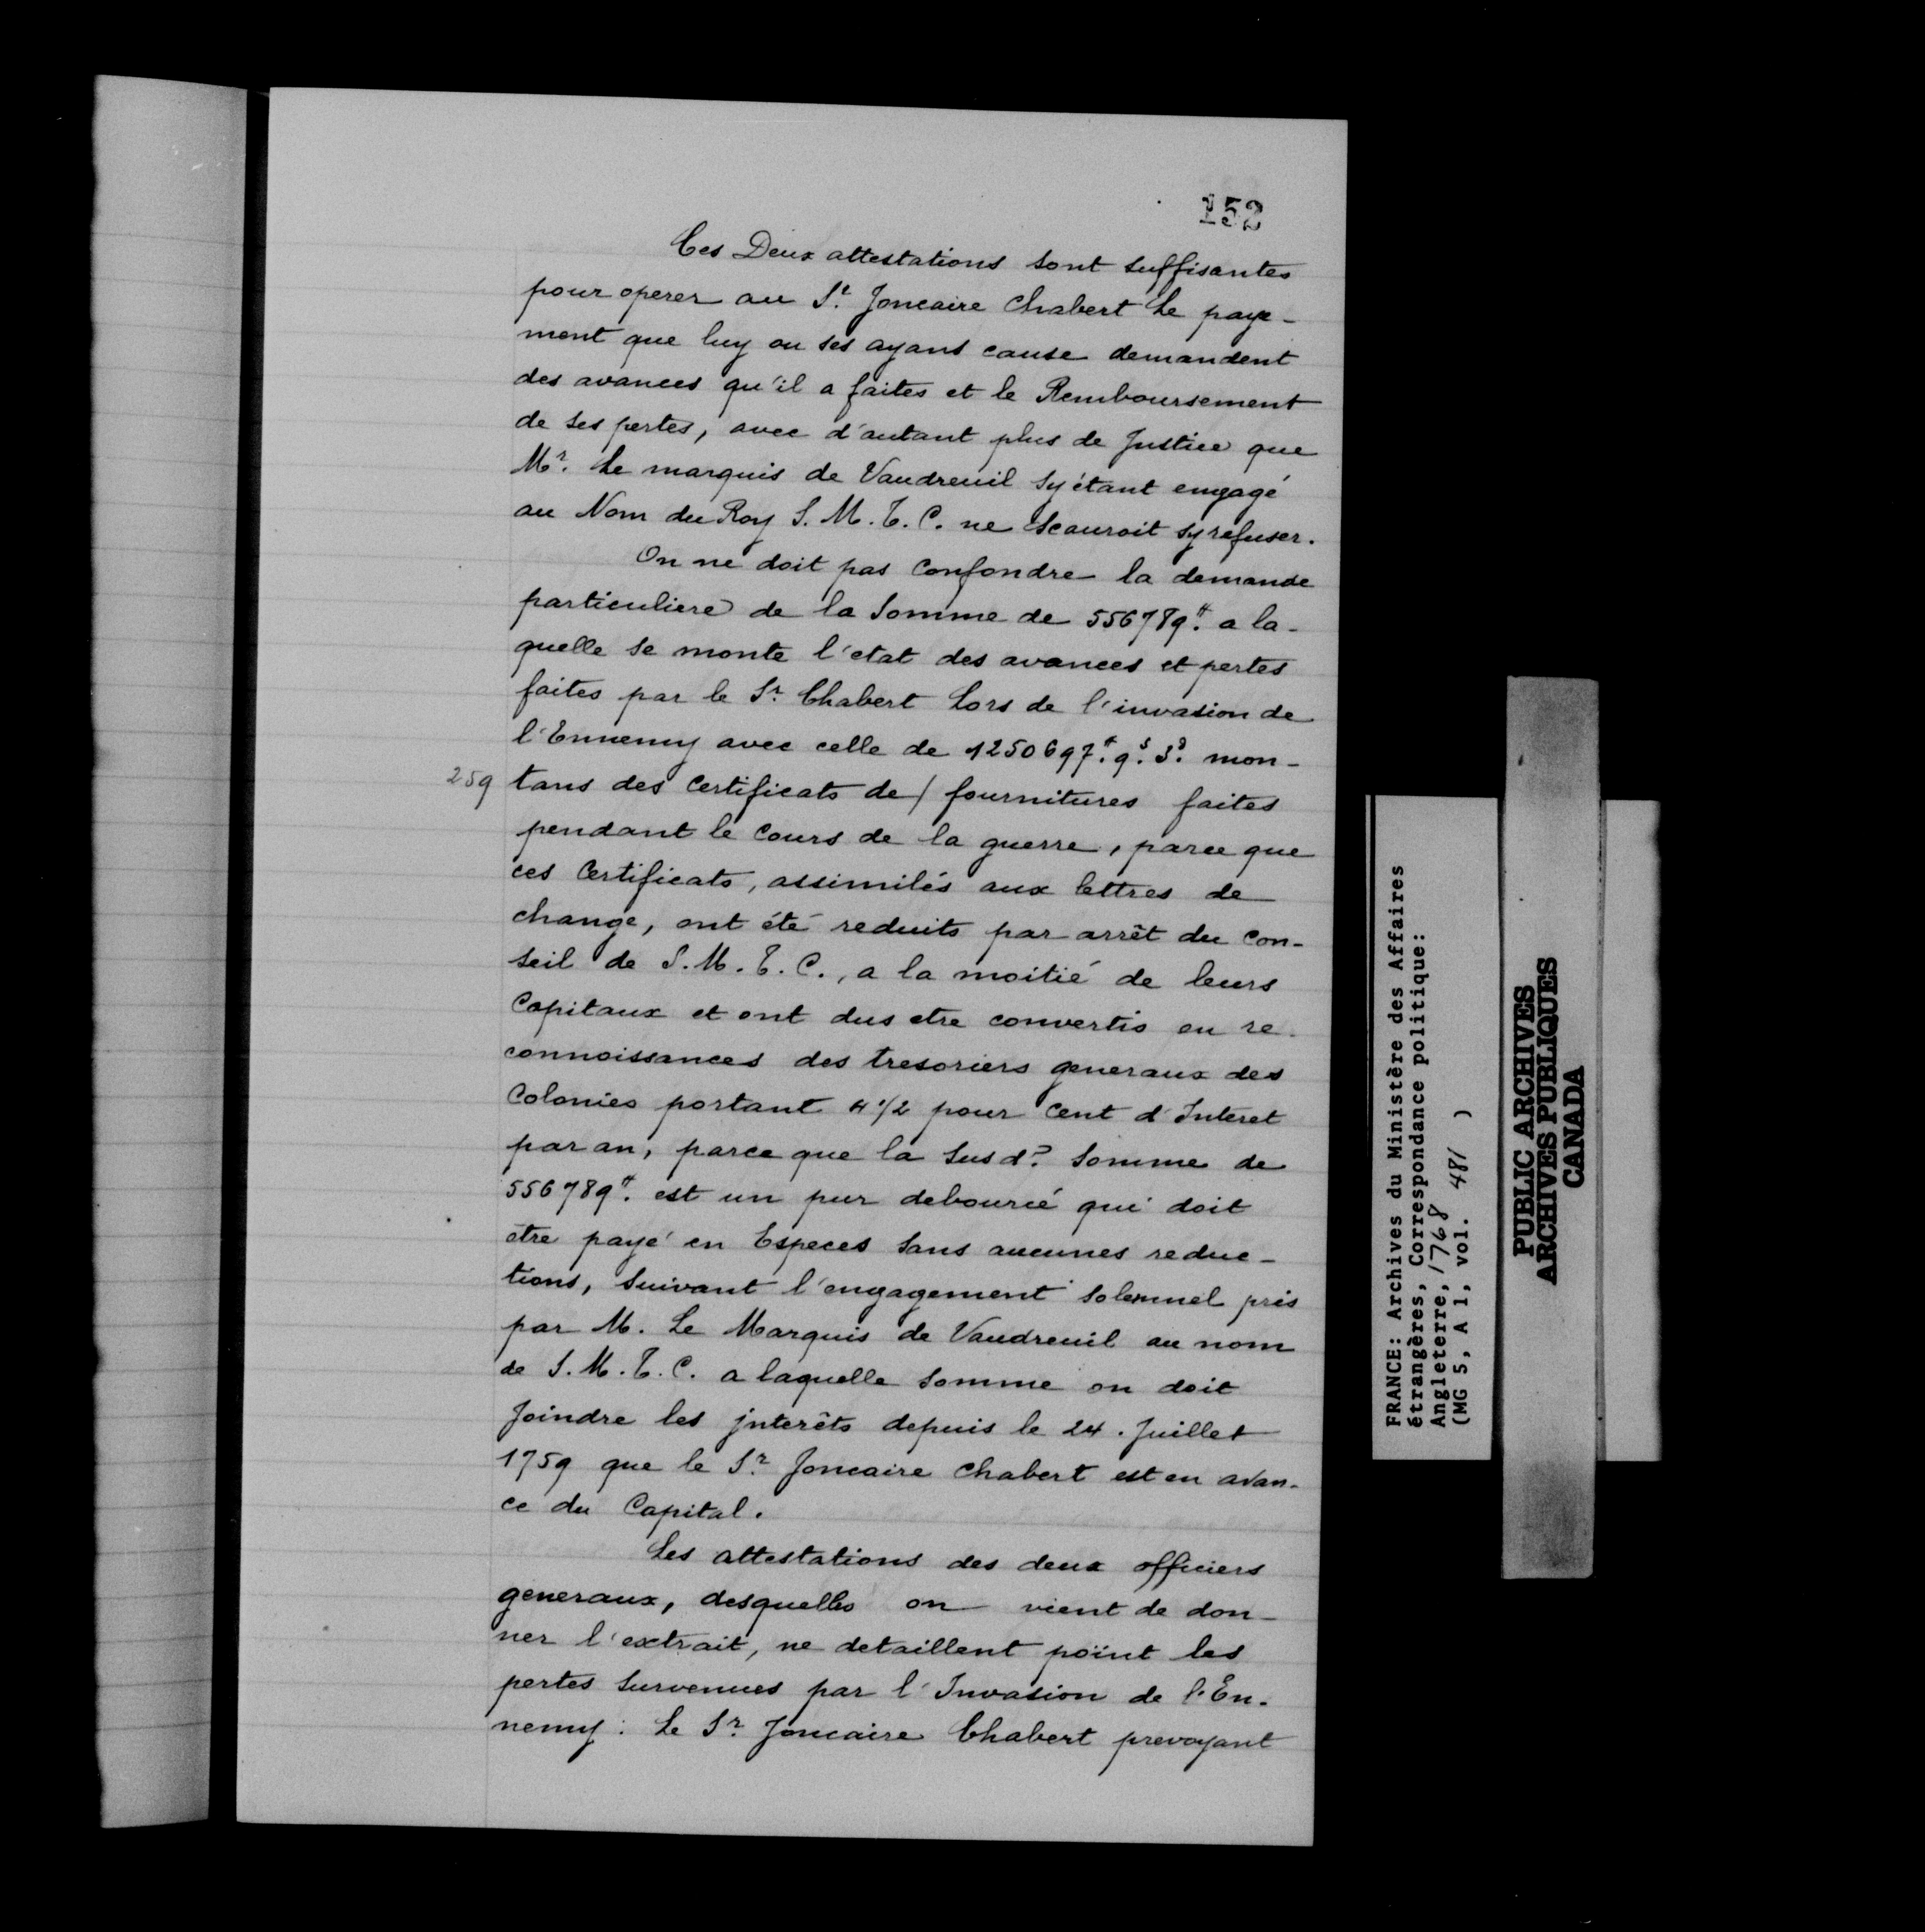 152
Ces Deux attestations sont suffisantes
pour operer au Sr. Joncaire Chabert Le paye-
ment que luy ou ses ayans cause demandent
des avances qu'il a faites et le Remboursement
de ses pertes, avec d'autant plus de Justice que
Mr. Le marquis de Vaudreuil sy étant engagé
au Nom du Roy S. M. T. C. ne scauroit sy refuser.
On ne doit pas confondre la demande
particuliere de la somme de 556789ᵗᵗ. a la-
quelle se monte l'etat des avances et pertes
faites par le Sr. Chabert Lors de l'invasion de
l'Ennemy avec celle de 1250697ᵗᵗ. 9ˢ. 3ᵈ. mon-
259 tans des certificats de / fournitures faites
pendant le cours de la guerre, parce que
ces certificats, assimilés aux lettres de
change, ont été reduits par arrêt du con-
seil de S. M. T. C., a la moitié de leurs
Capitaux et ont dus etre convertis en re-
connoissances des tresoriers generaux des
Colonies portant 4 1/2 pour Cent d'Interet
par an, parce que la susd? somme de
556789ᵗᵗ. est un pur debourcé qui doit
etre payé en Especes sans aucunes reduc-
tions, suivant l'engagement solemnel pris
par M. Le Marquis de Vaudreuil au nom
de S. M. T. C. a laquelle somme on doit
Joindre les jnterêts depuis le 24. Juillet
1759 que le Sr. Joncaire chabert est en avan-
ce du Capital.
Les attestations des deux officiers
generaux, desquelles on vient de don-
ner l'extrait, ne detaillent point les
pertes survenues par l'Invasion de l'En-
nemy: Le Sr. Joncaire Chabert prevoyant
FRANCE: Archives du Ministère des Affaires
étrangères, Correspondance politique:
Angleterre, 1768
(MG 5, A 1, vol. 481 )
PUBLIC ARCHIVES
ARCHIVES PUBLIQUES
CANADA